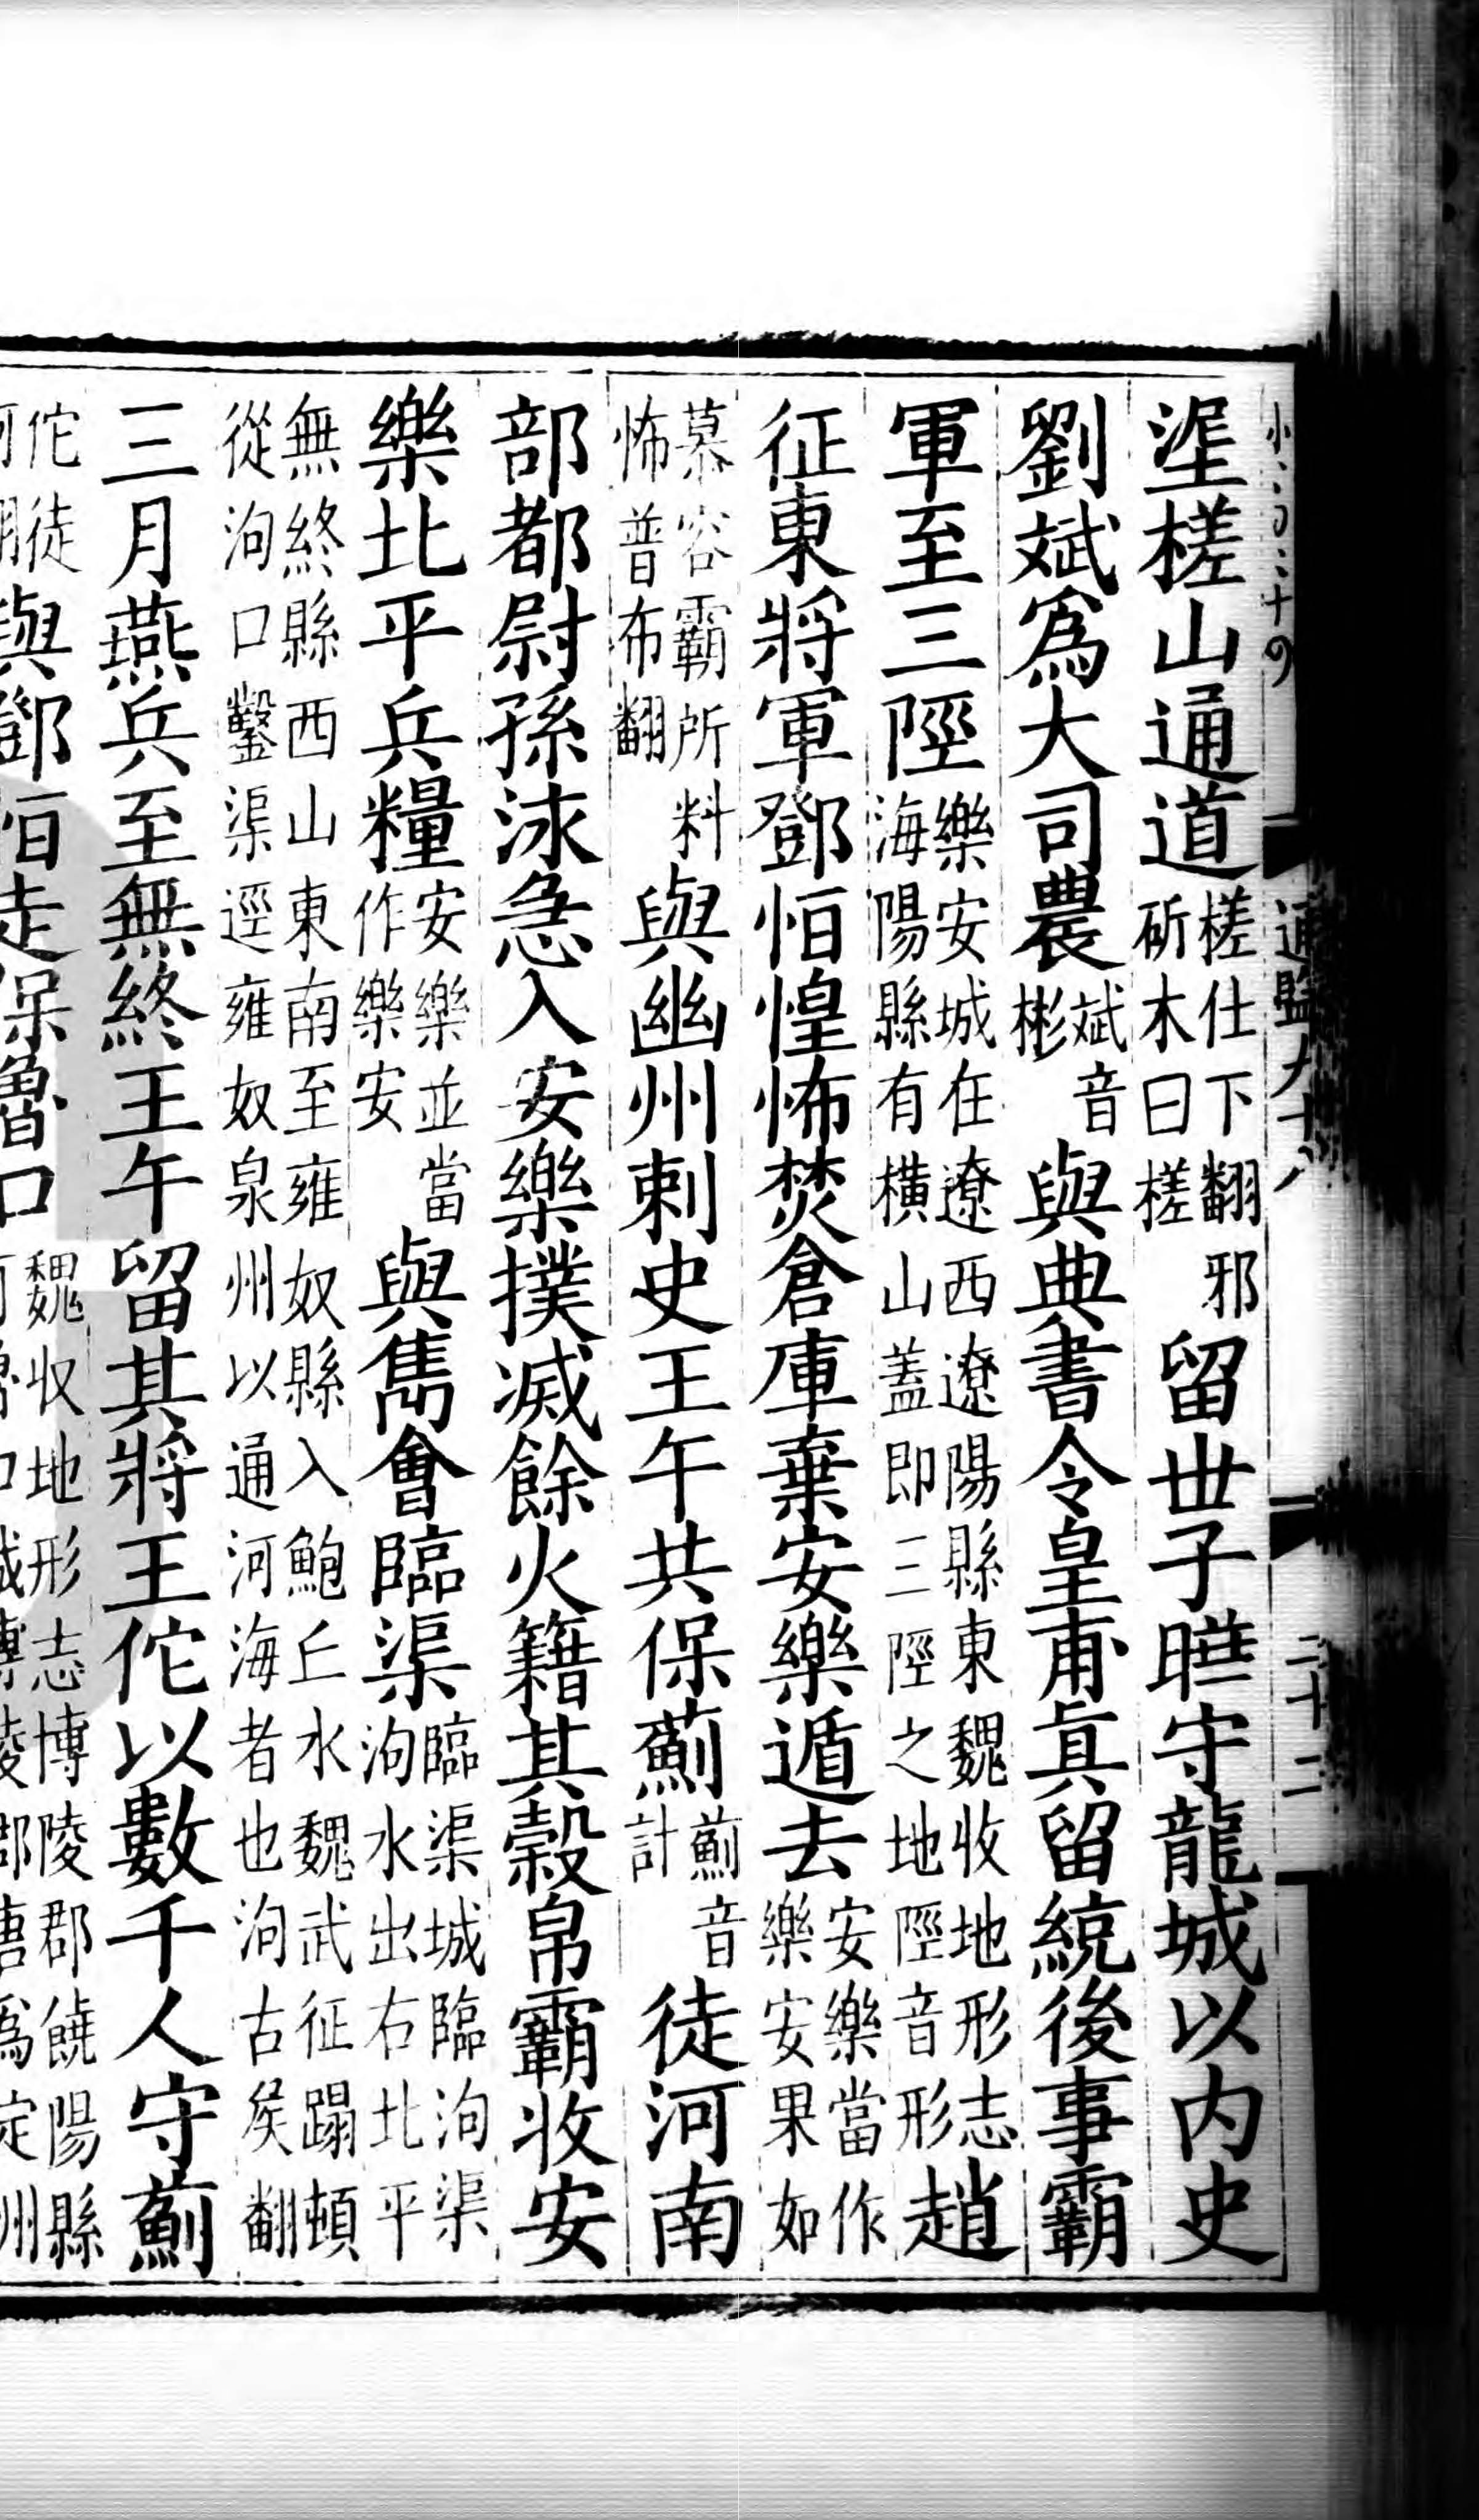 通鑑九十八
二十二
埿槎山通道槎仕下翻邪斫木曰槎留世子曄守龍城以內史
劉斌爲大司農斌音彬與典書令皇甫眞留統後事霸
軍至三陘樂安城在遼西遼陽縣東魏收地形志海陽縣有橫山蓋即三陘之地陘音形趙
征東將軍鄧恒惶怖焚倉庫棄安樂遁去安樂當作樂安果如
慕容霸所料怖普布翻與幽州刺史王午共保薊薊音計徒河南
部都尉孫泳急入安樂撲滅餘火籍其穀帛霸收安
樂北平兵糧安樂並當作樂安與雋會臨渠臨渠城臨泃渠泃水出右北平
無終縣西山東南至雍奴縣入鮑丘水魏武征蹋頓從泃口鑿渠逕雍奴泉州以通河海者也泃古侯翻
三月燕兵至無終王午留其將王佗以數千人守薊
佗徒河翻與鄧恒走保魯口魏收地形志博陵郡饒陽縣